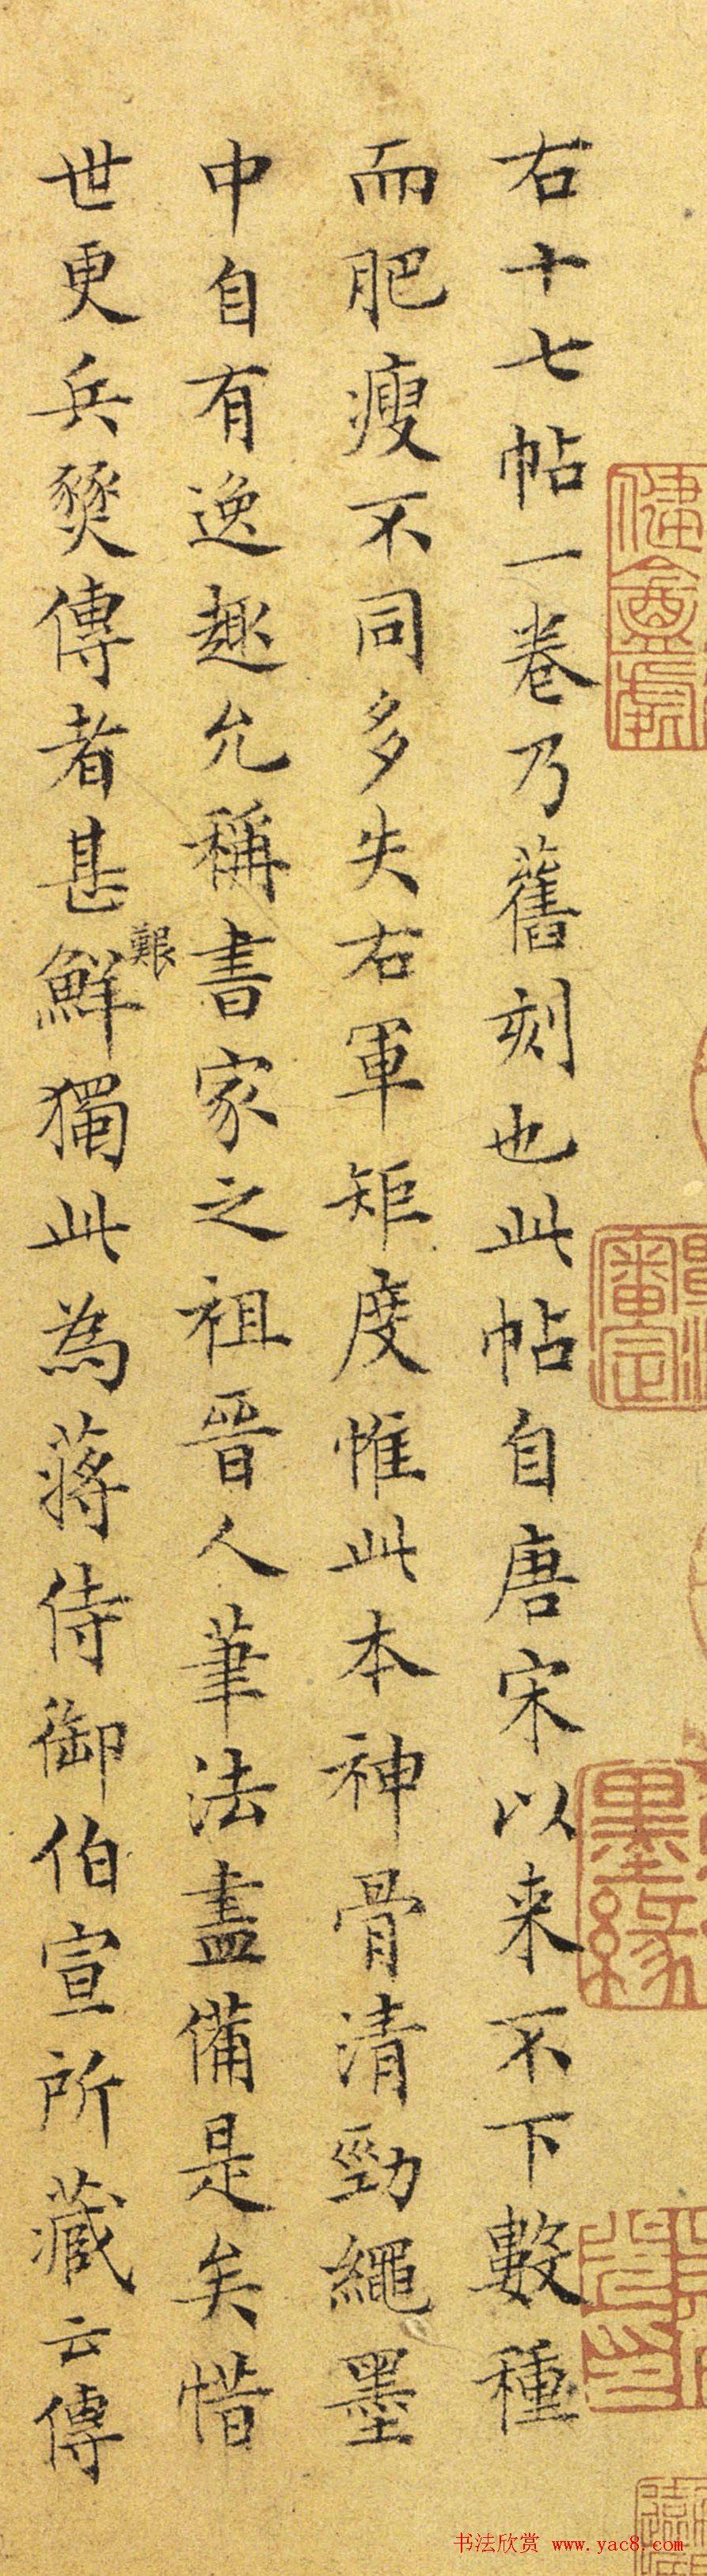 右十七帖一卷乃舊刻也此帖自唐宋以来不下數種
而肥瘦不同多失右軍矩度惟此本神骨清勁繩墨
中自有逸趣允稱書家之祖晉人筆法盡備是矣惜
世更兵燹傳者甚鮮獨此為蔣侍御伯宣所藏云傳
艱
審定
墨緣
书法欣赏 www.yac8.com